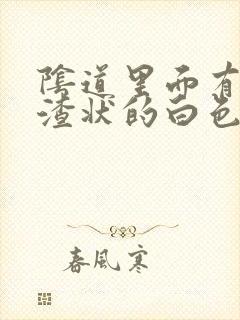 陰道里面有
渣状的白色
春風寒